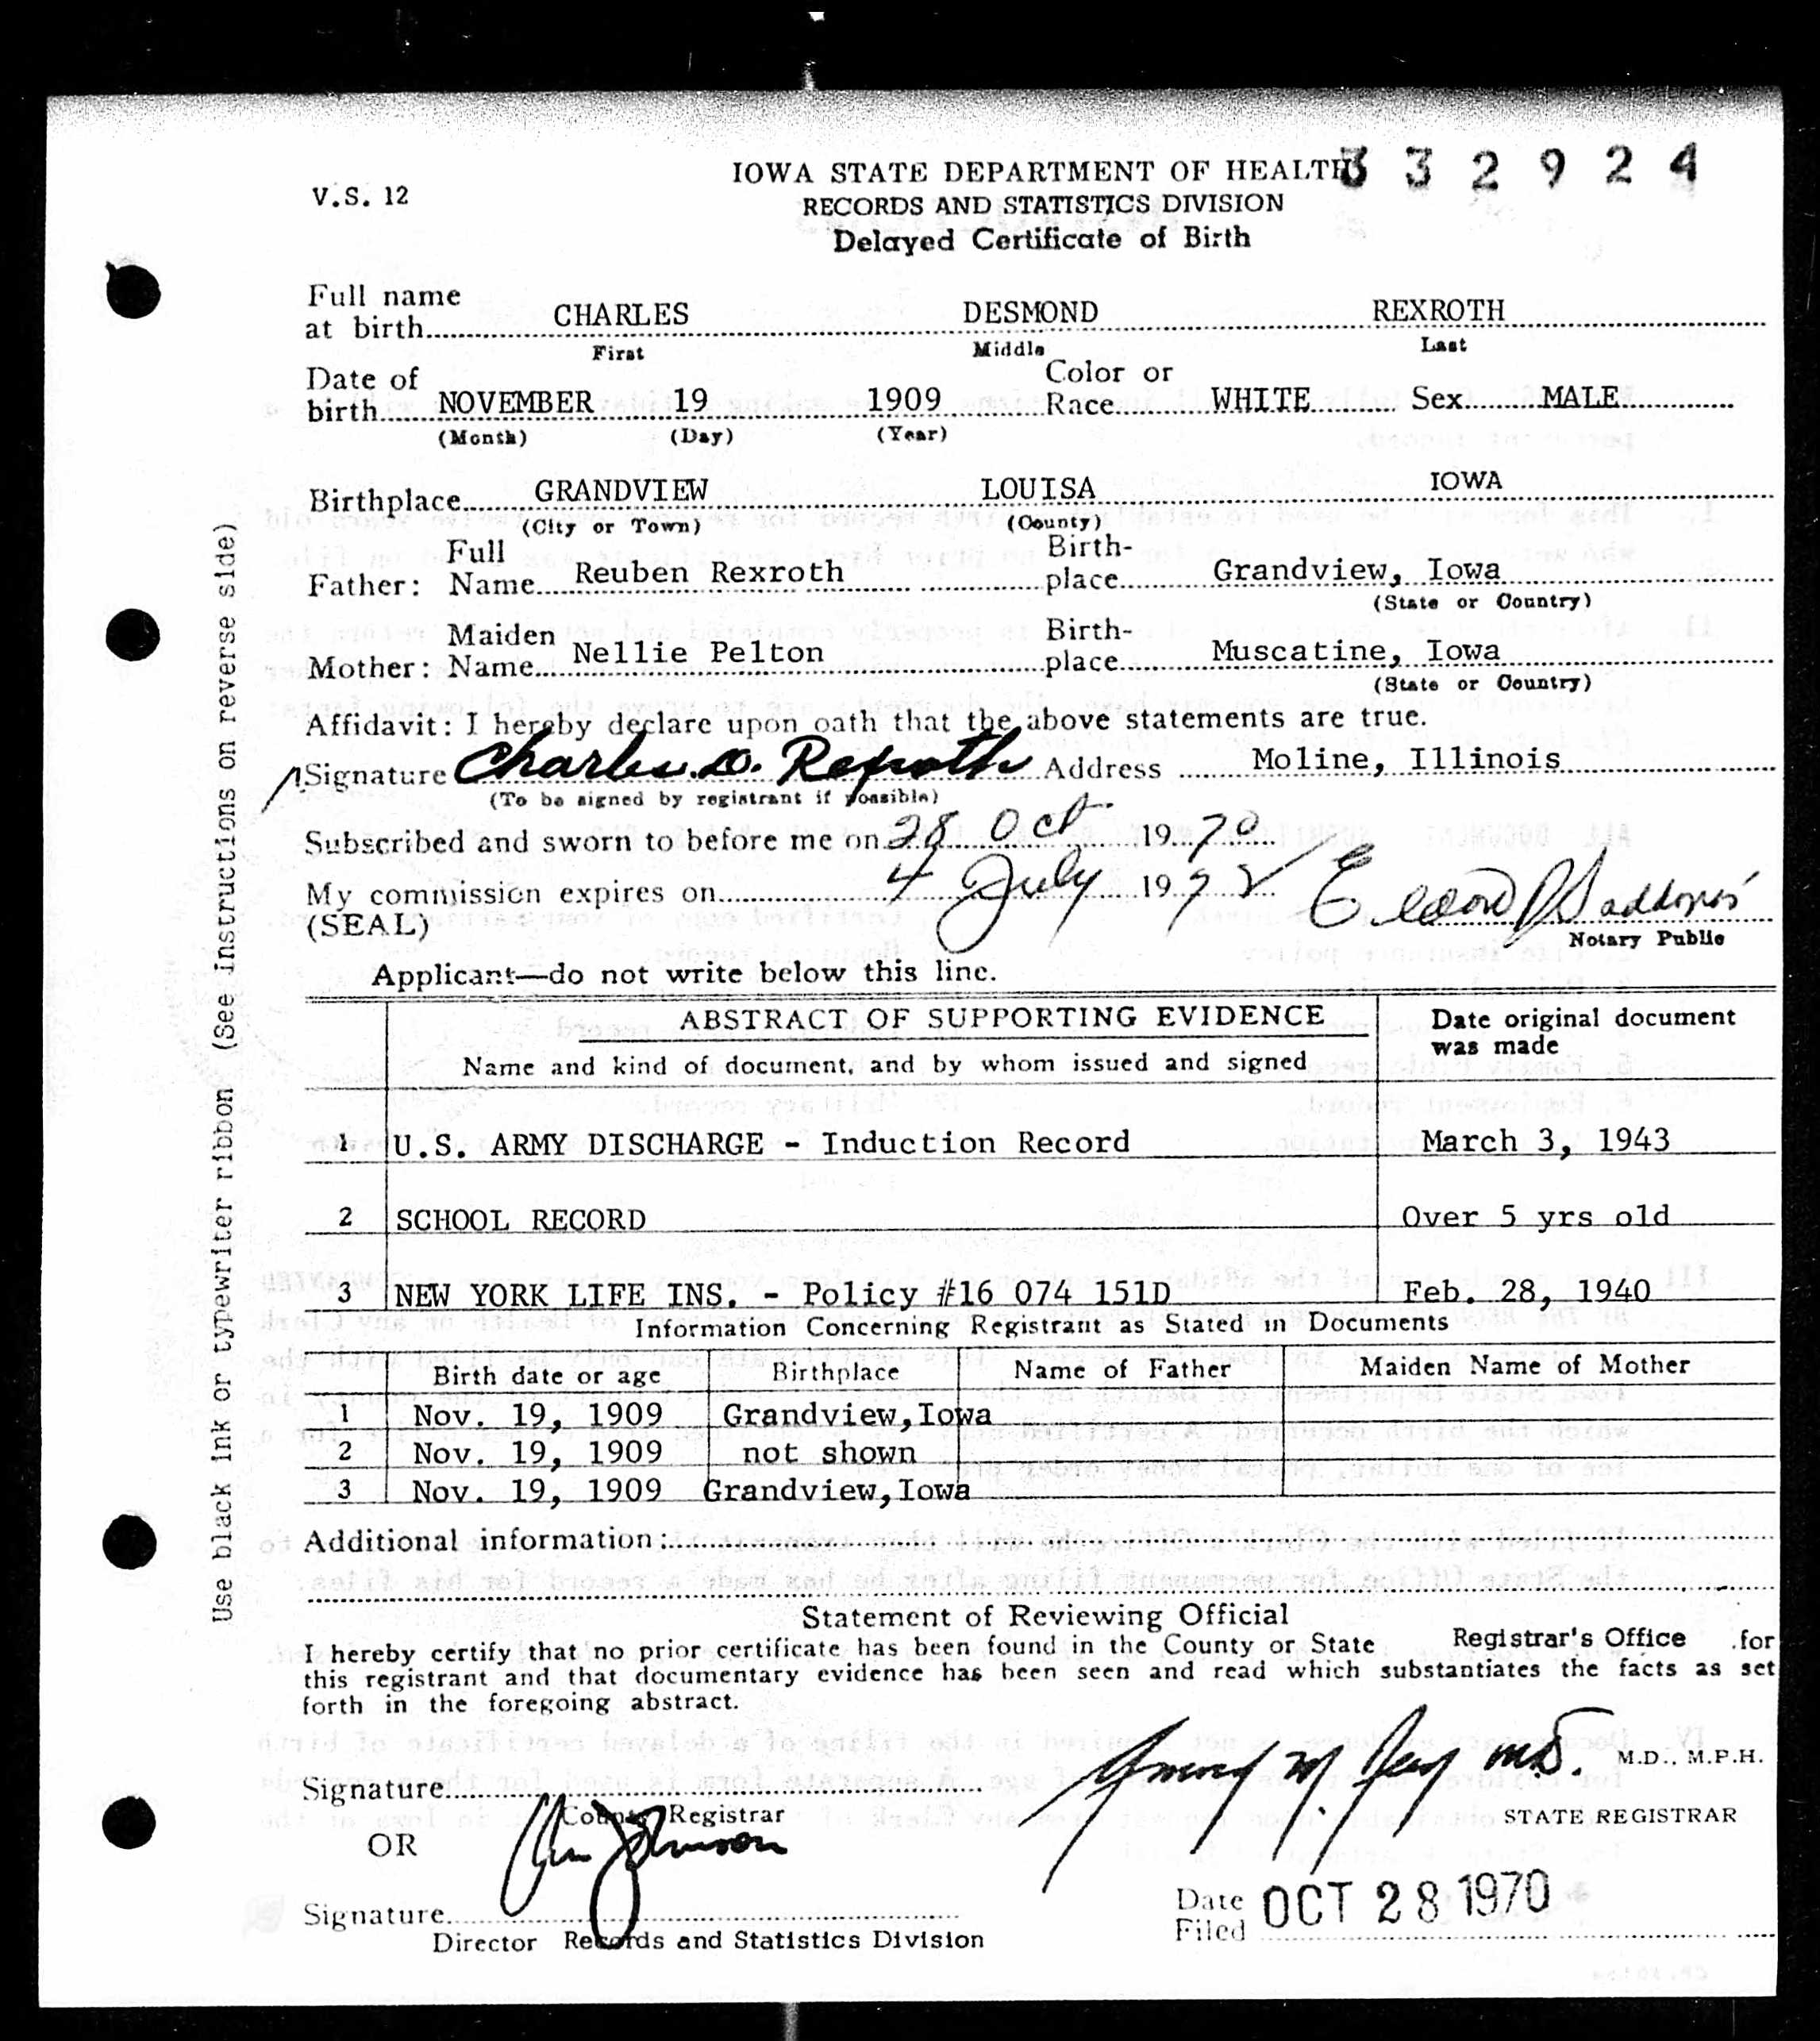 V.S. 12
IOWA STATE DEPARTMENT OF HEALTH 332924
RECORDS AND STATISTICS DIVISION
Delayed Certificate of Birth
Full name
at birth CHARLES DESMOND REXROTH
First Middle Last
Date of Color or
birth NOVEMBER 19 1909 Race WHITE Sex MALE
(Month) (Day) (Year)
Birthplace GRANDVIEW LOUISA IOWA
(City or Town) (County)
Full Birth-
Father: Name Reuben Rexroth place Grandview, Iowa
(State or Country)
Maiden Birth-
Mother: Name Nellie Pelton place Muscatine, Iowa
(State or Country)
Affidavit: I hereby declare upon oath that the above statements are true.
Signature Charles D. Rexroth Address Moline, Illinois
(To be signed by registrant if possible)
Subscribed and sworn to before me on 28 Oct 1970
My commission expires on 4 July 1972
(SEAL)
Notary Public
Applicant—do not write below this line.
ABSTRACT OF SUPPORTING EVIDENCE Date original document
was made
Name and kind of document, and by whom issued and signed
1 U.S. ARMY DISCHARGE - Induction Record March 3, 1943
2 SCHOOL RECORD Over 5 yrs old
3 NEW YORK LIFE INS. - Policy #16 074 151D Feb. 28, 1940
Information Concerning Registrant as Stated in Documents
Birth date or age Birthplace Name of Father Maiden Name of Mother
1 Nov. 19, 1909 Grandview,Iowa
2 Nov. 19, 1909 not shown
3 Nov. 19, 1909 Grandview,Iowa
Additional information:
Statement of Reviewing Official
I hereby certify that no prior certificate has been found in the County or State Registrar's Office for
this registrant and that documentary evidence has been seen and read which substantiates the facts as set
forth in the foregoing abstract.
M.D. M.D., M.P.H.
Signature
County Registrar STATE REGISTRAR
OR Johnson
Date
Filed OCT 28 1970
Signature
Director Records and Statistics Division
Use black ink or typewriter ribbon (See instructions on reverse side)